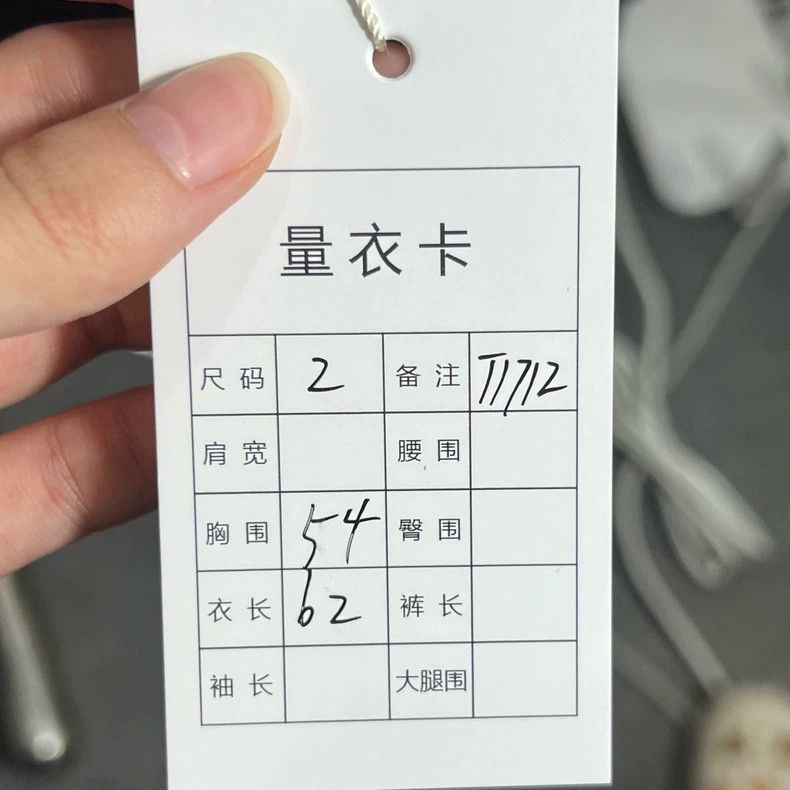 量衣卡
尺码 2 备注 T1712
肩宽 腰围
胸围 54 臀围
衣长 62 裤长
袖长 大腿围